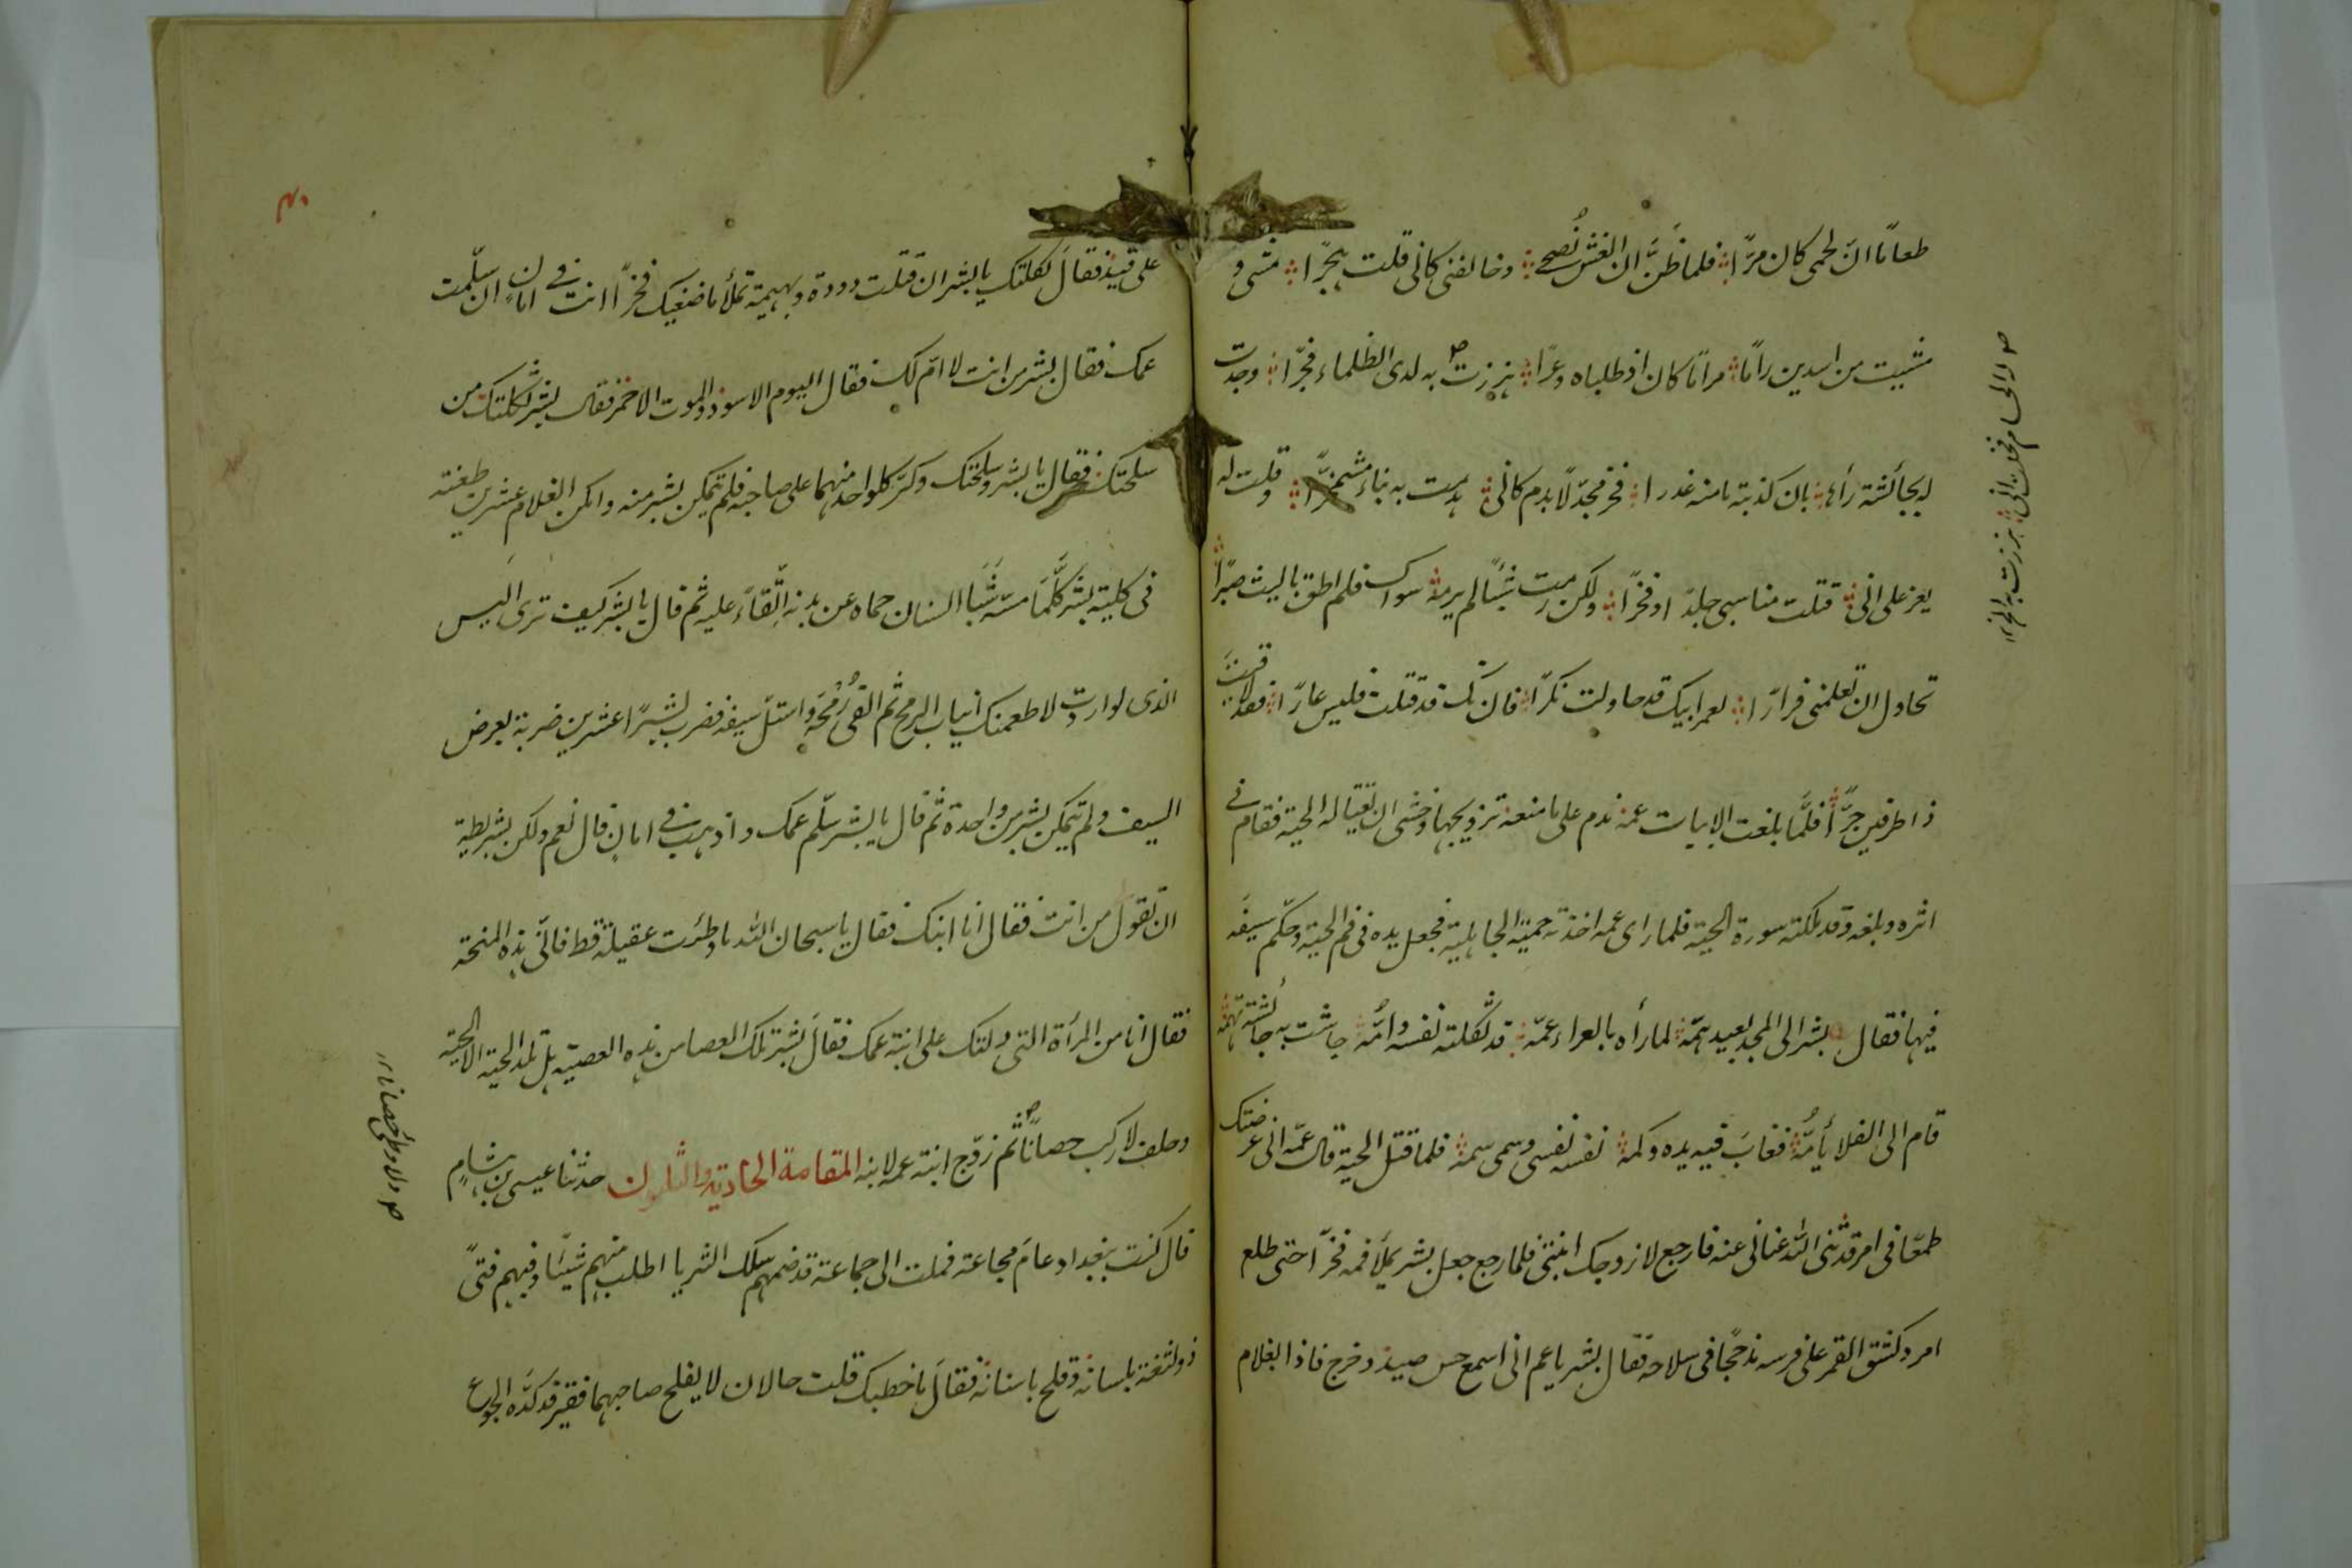 طعامًا انّ لحمى كان مرّا فلما ظَنَّ ان الغش نُصحى وخالفنى كانى قلت هجرًا مشى و
مشيت من اسدين راما مرامًا كان اذ طلباه وعرًا هززت به لدى الظلماء فجرا وجدت
له بجائشة رأى بان كذبته ما منه غدرا فخر مجدّلا بدم كانى هدمت به بناء مشمخرّا وقلت له
يعز على انى قتلت مناسبى جلدا وفخرًا ولكن رمت شيئًا لم يرمه سواك فلم اطق يا ليث صبرًا
تحاول ان تعلمنى فرارًا لعمر ابيك قد حاولت نكرًا فان تك قد قتلت فليس عارًا فقد لاقيت
ذا طرفين حرًّا فلمّا بلغت الابيات عمه ندم على ما منعه تزويجها وخشى ان تغتاله الحية فقام فى
اثره وبلغه وقد ملكته سورة الحية فلما راى عمه اخذته حمية الجاهلية فجعل يده فى فم الحية وحكم سيفه
فيها فقال بشر الى المجد بعيد همّه لما رأه بالعراء عمّه قد ثكلته نفسه وامّه جاشت به جائشة تهمّه
قام الى الفلا يأمّه فغابَ فيه يده وكمه نفسه نفسى وسمى سمه فلما قتل الحية قال عمّه انى عرضتك
طمعًا فى امر قد ثنى الله عنانى عنه فارجع لازوجك ابنتى فلما رجع جعل بشر يملأ فمه فخرًا حتى طلع
امرد كشق القمر على فرسه مدججًا فى سلاحه فقال بشر يا عم انى اسمع حس صيد وخرج فاذا بغلام
ص ولا الحسام فخلت انى هززت به الخ
على قيد فقال ثكلتك يا بشر ان قتلت دودة وبهيمة تملأ ماضغيك فخرًا انت فى امان ان سلّمت
عمك فقال بشر من انت لا امّ لك فقال اليوم الاسود والموت الاحمر فقال بشر ثكلتك من
سلحتك فقال يا بشر ومن سلحتك وكرّ كل واحد منهما على صاحبه فلم يتمكن بشر منه وامكن الغلام عشرين طعنة
فى كلية بشر كلّمَا مسّه شَبَا السنان حماه عن بدنه اتّقاءً عليه ثم قال يا بشر كيف ترى اليس
الذى لو اردت لاطعمتك انياب الرمح ثم القى رُمْحَه واستل سيفه فضرب بشرًا عشرين ضربة بعرض
السيف ولم يتمكن بشر من واحدة ثم قال يا بشر سلّم عمك واذهب فى امان قال نعم ولكن بشريطة
ان تقول من انت فقال انا ابنك فقال يا سبحان الله ما وطئت عقيلة قط فانّى هذه المنحة
فقال انا من المرأة التى دلتك على ابنة عمك فقال بشر تلك العصا من هذه العصيّة هل تلد الحية الا الحية
وحلف لا ركب حصانًا ثم زوّج ابنة عمه لابنه المقامة الحادية والثلثون حدثنا عيسى بن هشام
قال كنت ببغداد عامَ مجاعة فملت الى جماعة قد ضمهم سلك الثريا اطلب منهم شيئًا وفيهم فتىً
ذو لثغة بلسانه وفلج باسنانه فقال ما خطبك قلت حالان لا يفلح صاحبهما فقير قد كدّه الجوع
ص ولا وطئ حصانا